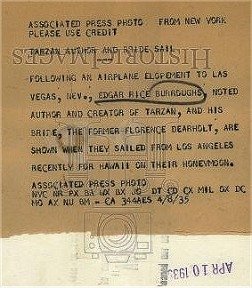 ASSOCIATED PRESS PHOTO FROM NEW YORK
PLEASE USE CREDIT
TARZAN AUTHOR AND BRIDE SAIL
FOLLOWING AN AIRPLANE ELOPEMENT TO LAS
VEGAS, NEV., EDGAR RICE BURROUGHS, NOTED
AUTHOR AND CREATOR OF TARZAN, AND HIS
BRIDE, THE FORMER FLORENCE DEARHOLT, ARE
SHOWN WHEN THEY SAILED FROM LOS ANGELES
RECENTLY FOR HAWAII ON THEIR HONEYMOON.
ASSOCIATED PRESS PHOTO
NYC NR PX BX WX BX JS DT CD CX MIL DX DC
MO AX NU BM - CA 344AES 4/8/35
APR 10 1935
HISTORIC
IMAGES